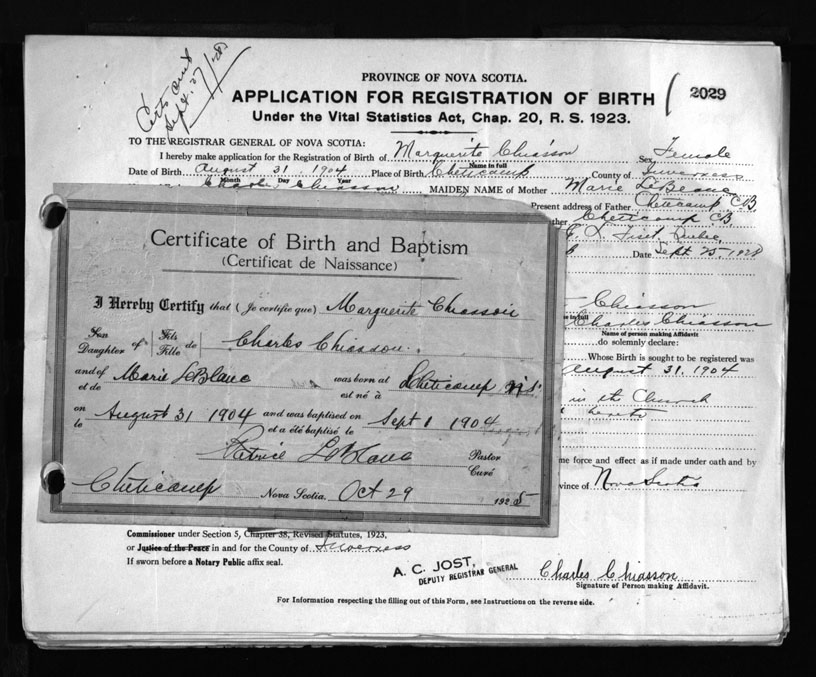 Certs sent
Sept. 27/28
PROVINCE OF NOVA SCOTIA.
APPLICATION FOR REGISTRATION OF BIRTH
2029
Under the Vital Statistics Act, Chap. 20, R. S. 1923.
TO THE REGISTRAR GENERAL OF NOVA SCOTIA:
I hereby make application for the Registration of Birth of Marguerite Chiasson Sex Female
Name in full
Date of Birth August 31 1904 Place of Birth Cheticamp County of Inverness
Month Day Year
Chiasson MAIDEN NAME of Mother Marie LeBlanc
Present address of Father Cheticamp CB
Cheticamp CB
Date Sept 25, 1928
Certificate of Birth and Baptism
(Certificat de Naissance)
I Hereby Certify that (Je certifie que) Marguerite Chiasson
Son Daughter of Fils Fille de Charles Chiasson
and of et de Marie LeBlanc was born at est né à Cheticamp N.S.
on le August 31 1904 and was baptised on et a été baptisé le Sept 1 1904
Patrice LeBlanc Pastor Curé
Cheticamp Nova Scotia, Oct 29 1925
Chiasson
Charles Chiasson
Name of person making Affidavit
do solemnly declare:
Whose Birth is sought to be registered was
August 31. 1904
in the Church
hereto
me force and effect as if made under oath and by
vince of Nova Scotia
Commissioner under Section 5, Chapter 38, Revised Statutes, 1923,
or Justice of the Peace in and for the County of Inverness
If sworn before a Notary Public affix seal.
A. C. JOST,
DEPUTY REGISTRAR GENERAL
Charles Chiasson
Signature of Person making Affidavit.
For Information respecting the filling out of this Form, see Instructions on the reverse side.